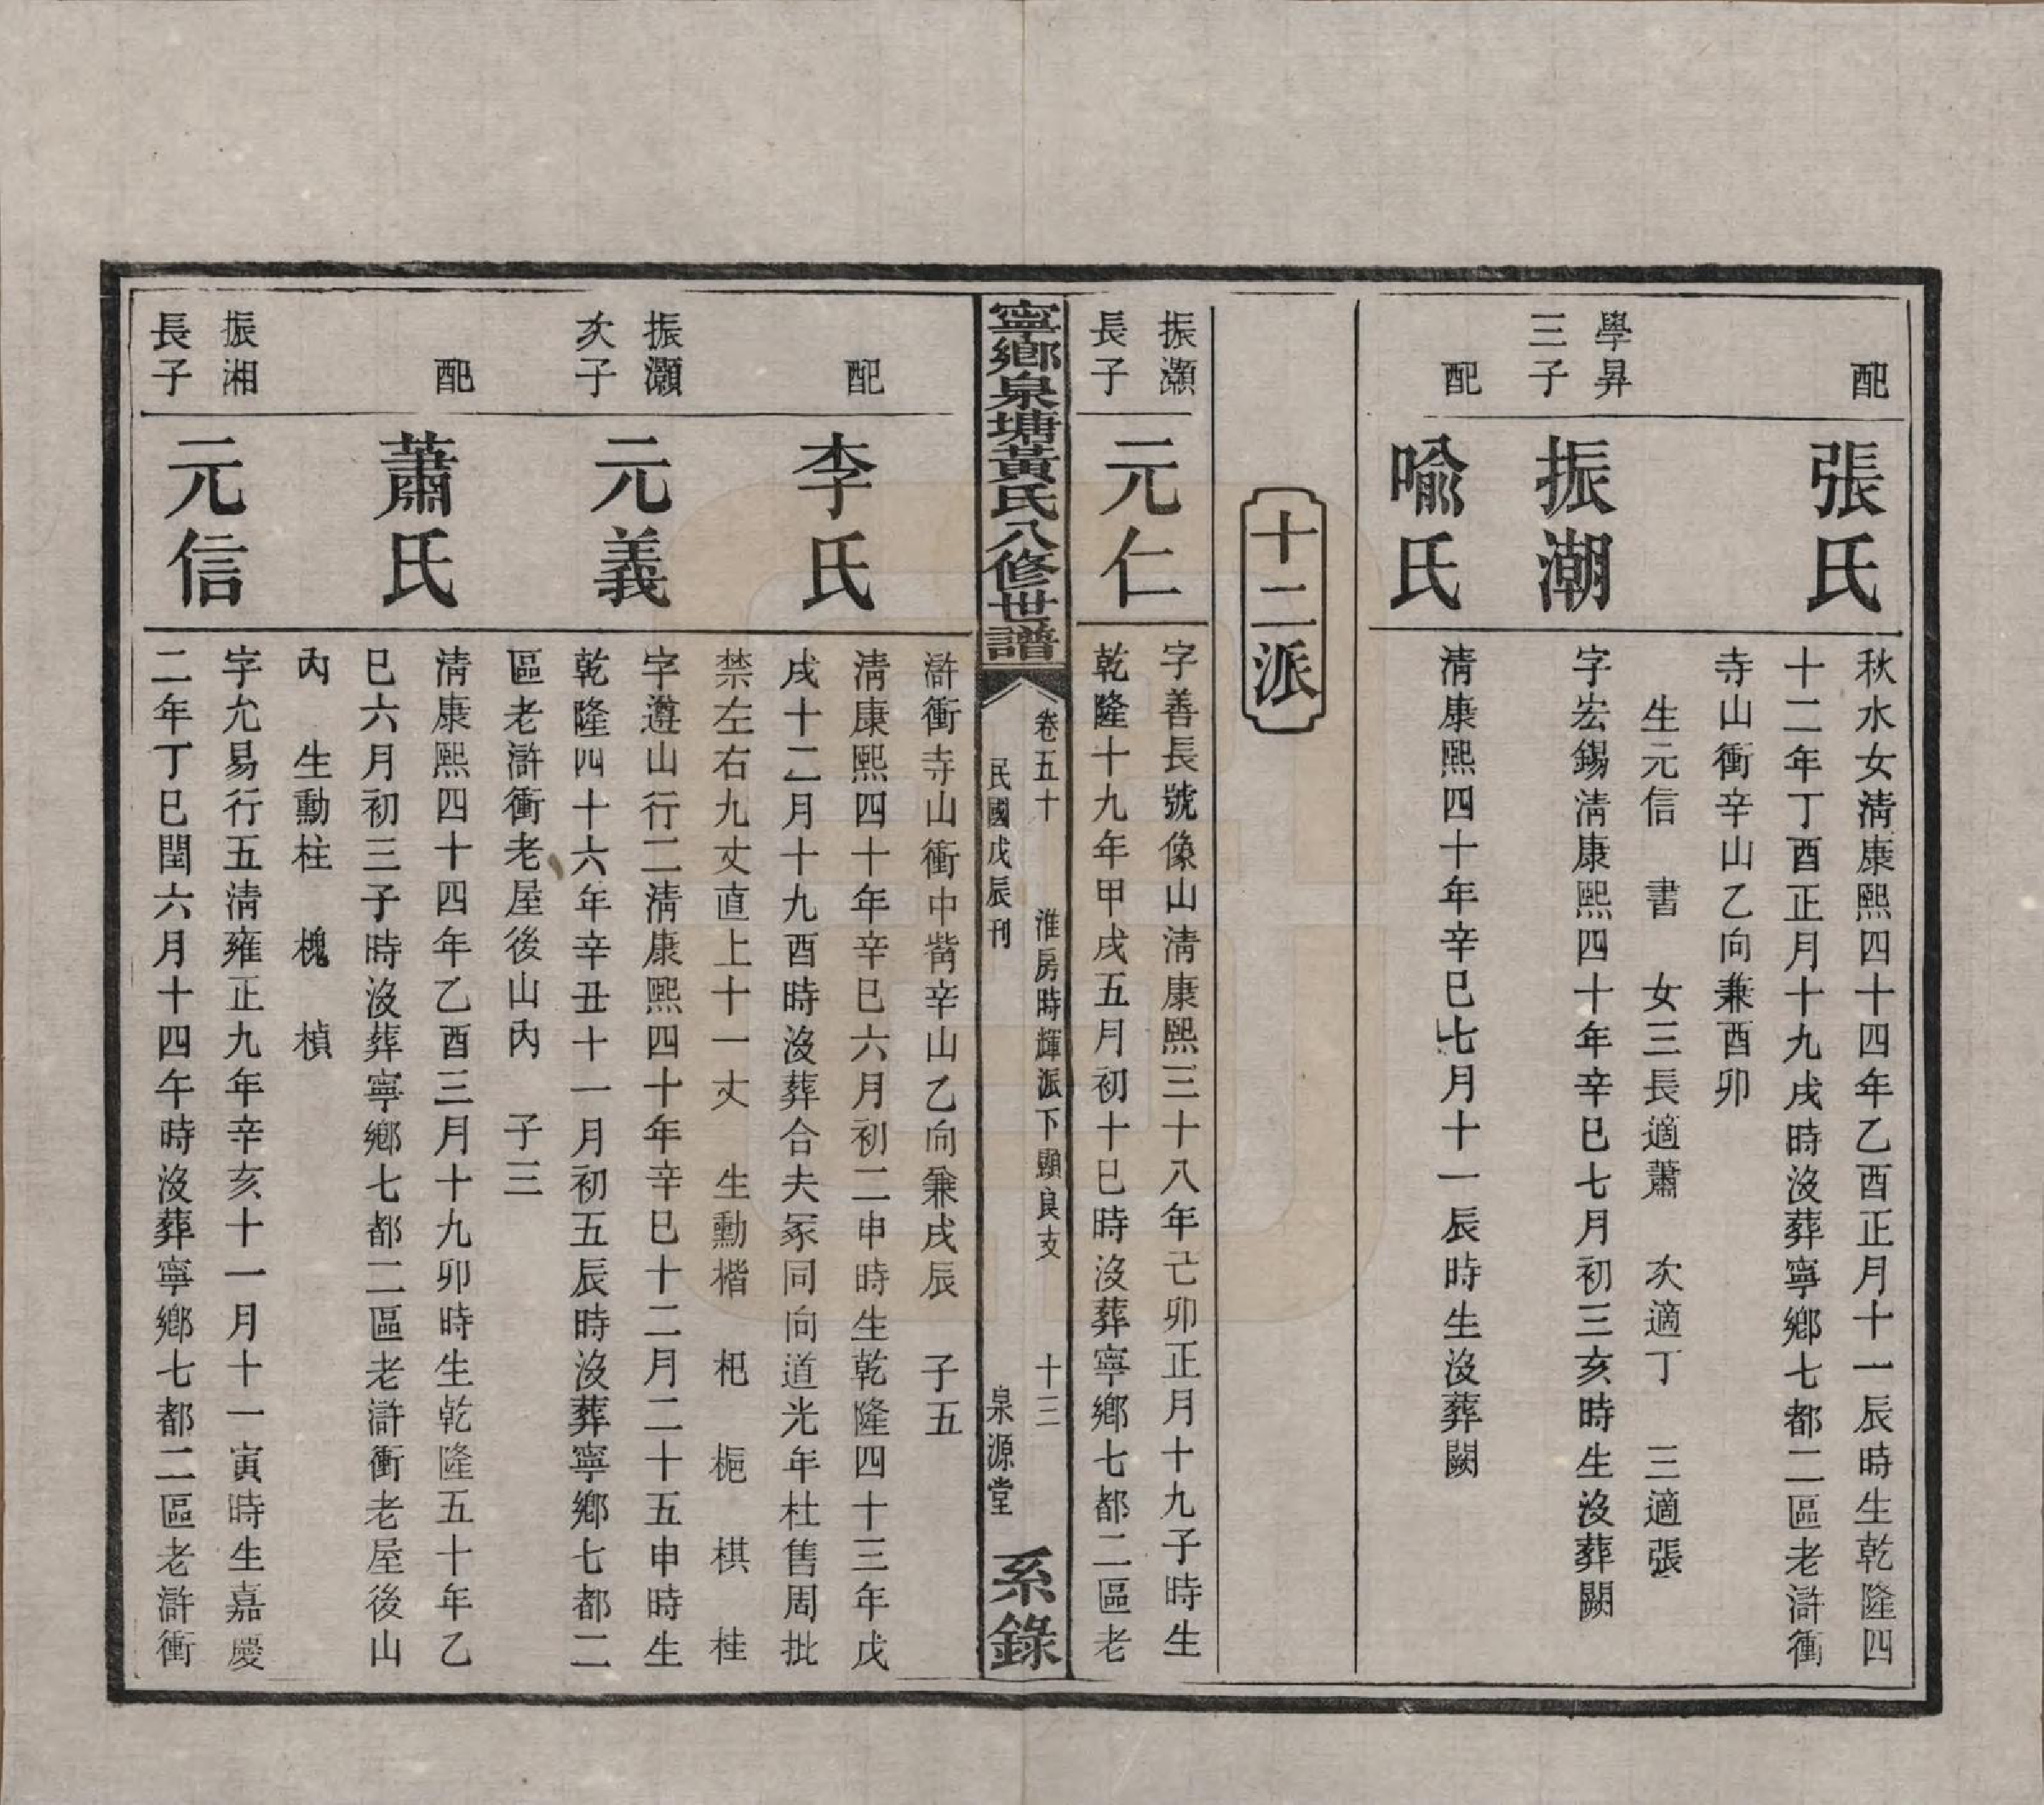 配
張氏
秋水女清康熙四十四年乙酉正月十一辰時生乾隆四
十二年丁酉正月十九戌時沒葬寧鄉七都二區老滸衝
寺山衝辛山乙向兼酉卯
生元信　書　女三長適蕭　次適丁　三適張
學昇
三子
振潮
字宏錫清康熙四十年辛巳七月初三亥時生沒葬闕
配
喻氏
清康熙四十年辛巳七月十一辰時生沒葬闕
十二派
振灝
長子
元仁
字善長號像山清康熙三十八年己卯正月十九子時生
乾隆十九年甲戌五月初十巳時沒葬寧鄉七都二區老
寧鄉泉塘黃氏八修世譜
卷五十　淮房時輝派下顯良支　十三
民國戊辰刊　泉源堂
系錄
滸衝寺山衝中嘴辛山乙向兼戌辰　子五
配
李氏
清康熙四十年辛巳六月初二申時生乾隆四十三年戊
戌十二月十九酉時沒葬合夫冢同向道光年杜售周批
禁左右九丈直上十一丈　生勳楷　杞　梔　棋　桂
振灝
次子
元義
字遵山行二清康熙四十年辛巳十二月二十五申時生
乾隆四十六年辛丑十一月初五辰時沒葬寧鄉七都二
區老滸衝老屋後山內　子三
配
蕭氏
清康熙四十四年乙酉三月十九卯時生乾隆五十年乙
巳六月初三子時沒葬寧鄉七都二區老滸衝老屋後山
內　生勳柱　槐　楨
振湘
長子
元信
字允易行五清雍正九年辛亥十一月十一寅時生嘉慶
二年丁巳閏六月十四午時沒葬寧鄉七都二區老滸衝